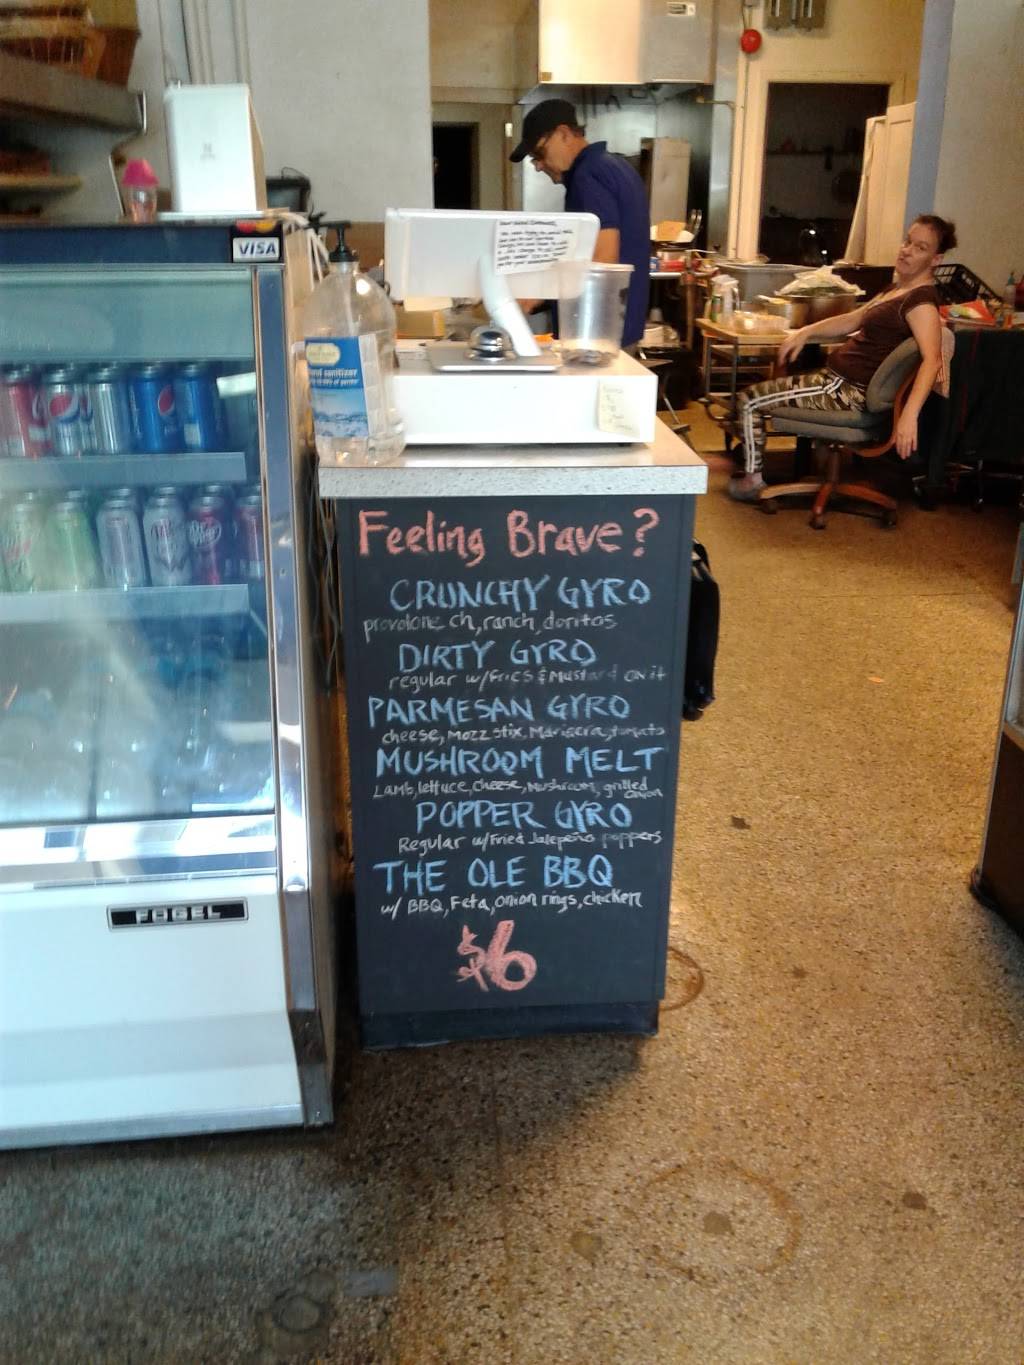 VISA
hand sanitizer
Feeling Brave?
CRUNCHY GYRO
provolone ch, ranch, doritos
DIRTY GYRO
regular w/fries & Mustard on it
PARMESAN GYRO
cheese, mozz stix, Marinera, tomato
MUSHROOM MELT
Lamb, lettuce, cheese, Mushroom, grilled
onion
POPPER GYRO
Regular w/Fried Jalepeño poppers
THE OLE BBQ
w/ BBQ, Feta, onion rings, chicken
$6
FOGEL